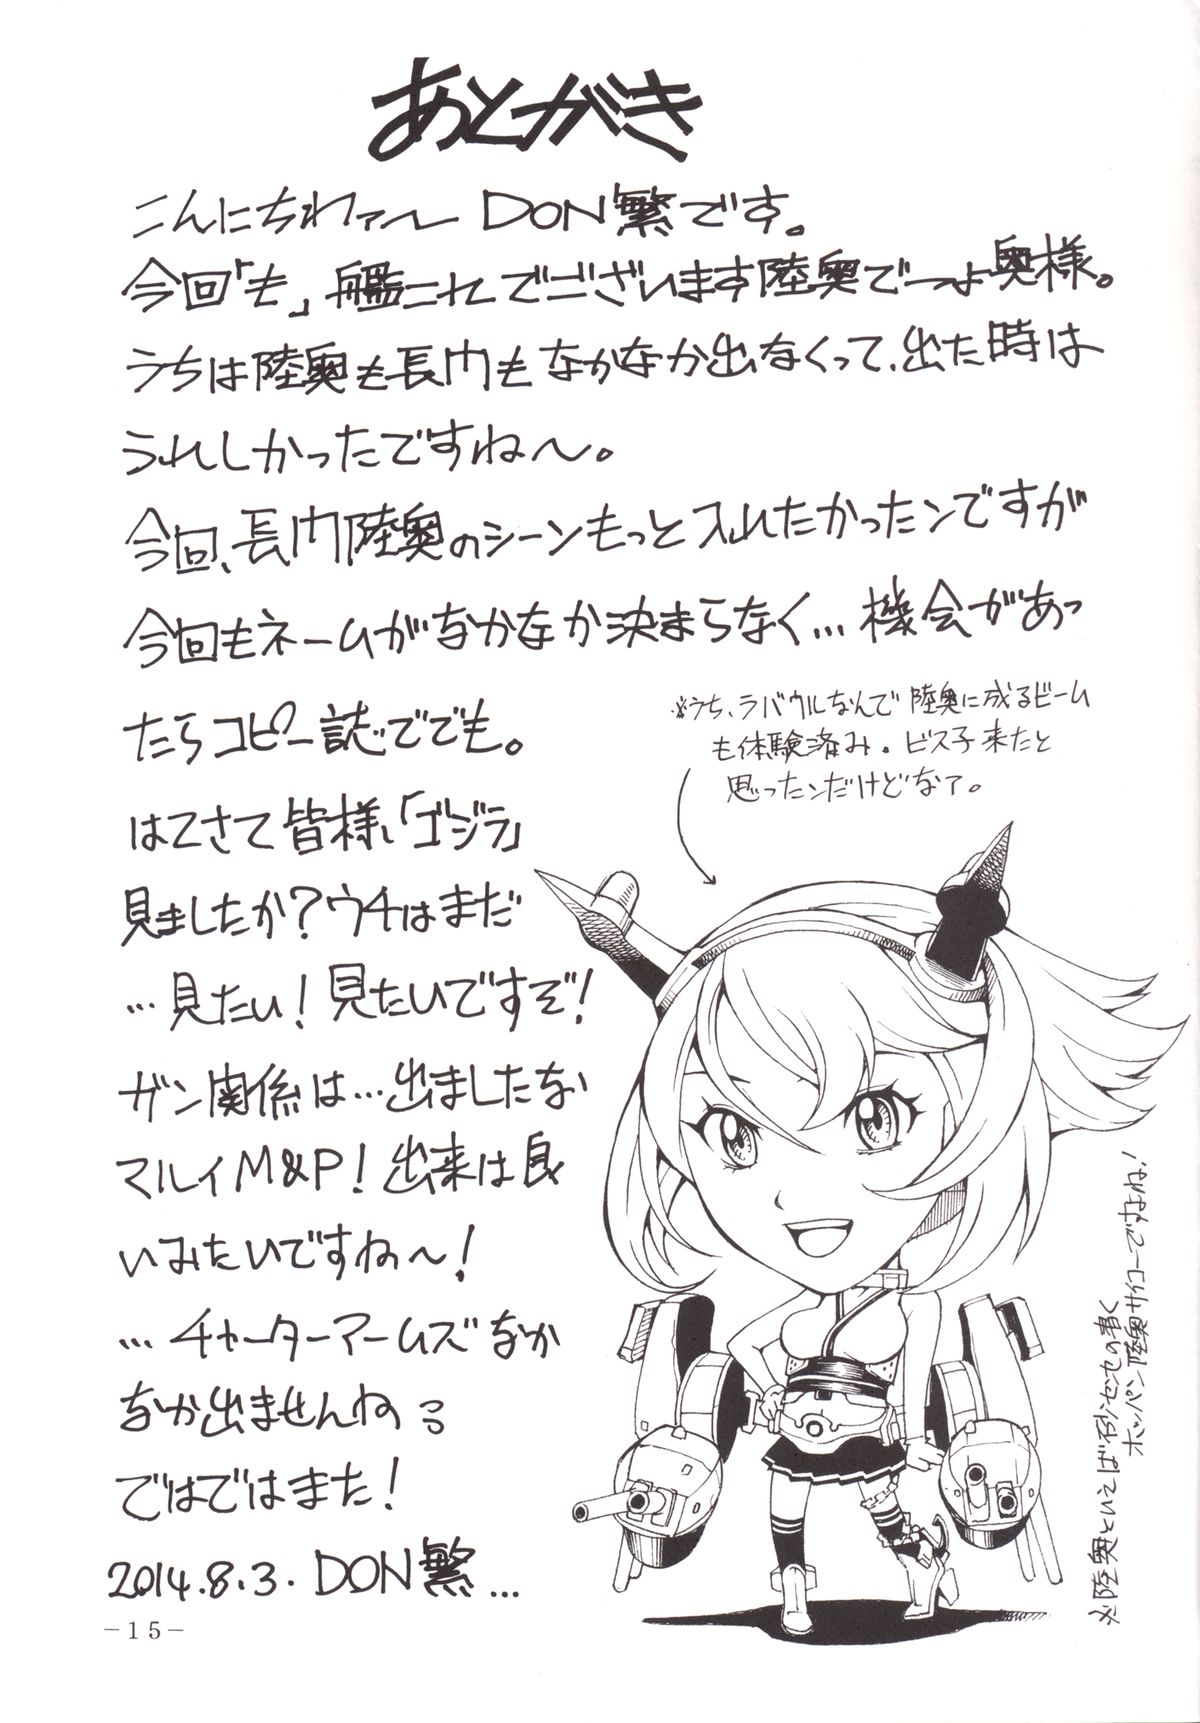 あとがき
こんにちわァ〜 DON繁です。
今回「も」艦これでございます陸奥でっよ奥様。
うちは陸奥も長門もなかなか出なくって、出た時は
うれしかったですね〜。
今回、長門陸奥のシーンもっと入れたかったンですが
今回もネームがなかなか決まらなく…機会があっ
たらコピー誌ででも。
※うち、ラバウルなんで陸奥に成るビーム
も体験済み。ビス子来たと
思ったンだけどなァ。
はてさて皆様、「ゴジラ」
見ましたか？ウチはまだ
…見たい！見たいですぞ！
ガン関係は…出ましたない
マルイM&P！出来は良
いみたいですね〜！
…チャーターアームズなか
なか出ませんねョ
ではではまた！
2014.8.3. DON繁…
※陸奥といえばセンセの書く
ホッパン陸奥サイコーですよね！
－15－